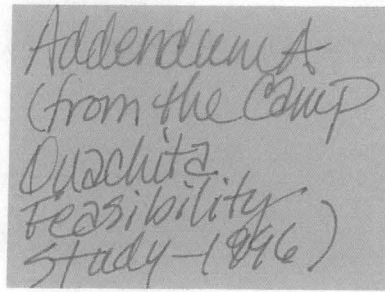 Addendum A
(from the Camp
Ouachita
Feasibility
Study-1996)